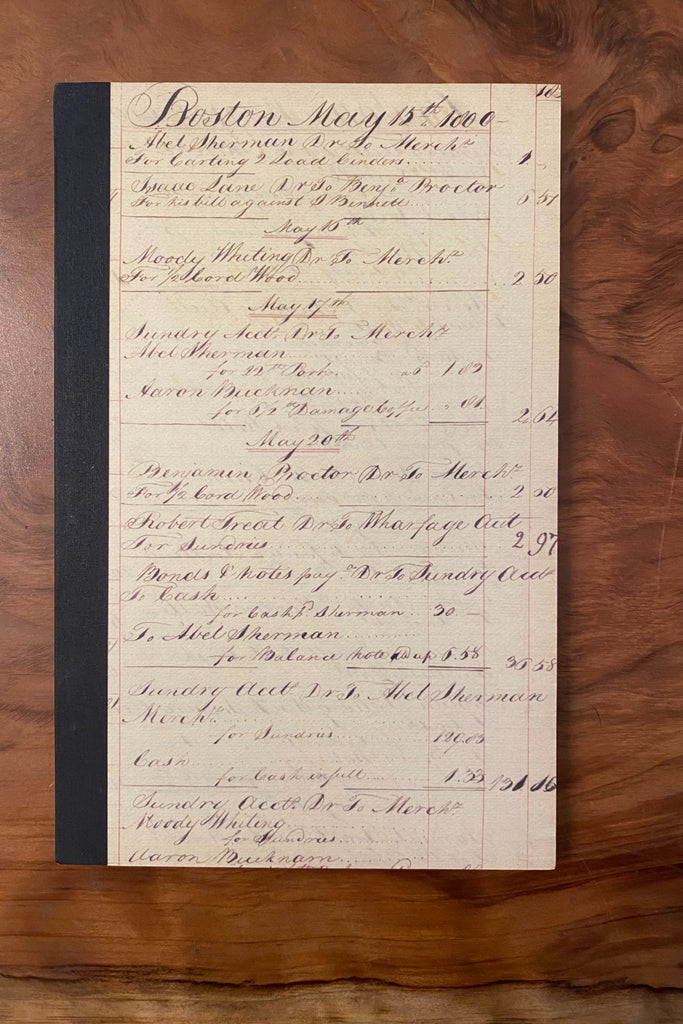 182
Boston May 15th 1800
Abel Sherman Dr To Merchz
For Carting 2 Load Cinders 1 –
Isaac Lane Dr To Benja Proctor
For his bill against S Bennett 6 57
May 16th
Moody Whiting Dr To Merchz
For 1/2 Cord Wood 2 50
May 17th
Sundry Accts Dr To Merchz
Abel Sherman
for 22 Pork a 6 1.83
Aaron Bucknan
for 6 1/2 Damage Coffee .81 2.64
May 20th
Benjamin Proctor Dr To Merchz
For 1/2 Cord Wood 2 50
Robert Treat Dr To Wharfage Act
For Sundries 2 97
Bonds & Notes pay Dr To Sundry Acts
To Cash
for Cash pd Sherman 30. –
To Abel Sherman
for Balance Note up 6.58 36 58
Sundry Accts Dr To Abel Sherman
Merchz
for Sundries 129.83
Cash
for Cash in full 1.33 131 16
Sundry Accts Dr To Merchz
Moody Whiting
for Sundries
Aaron Bucknam